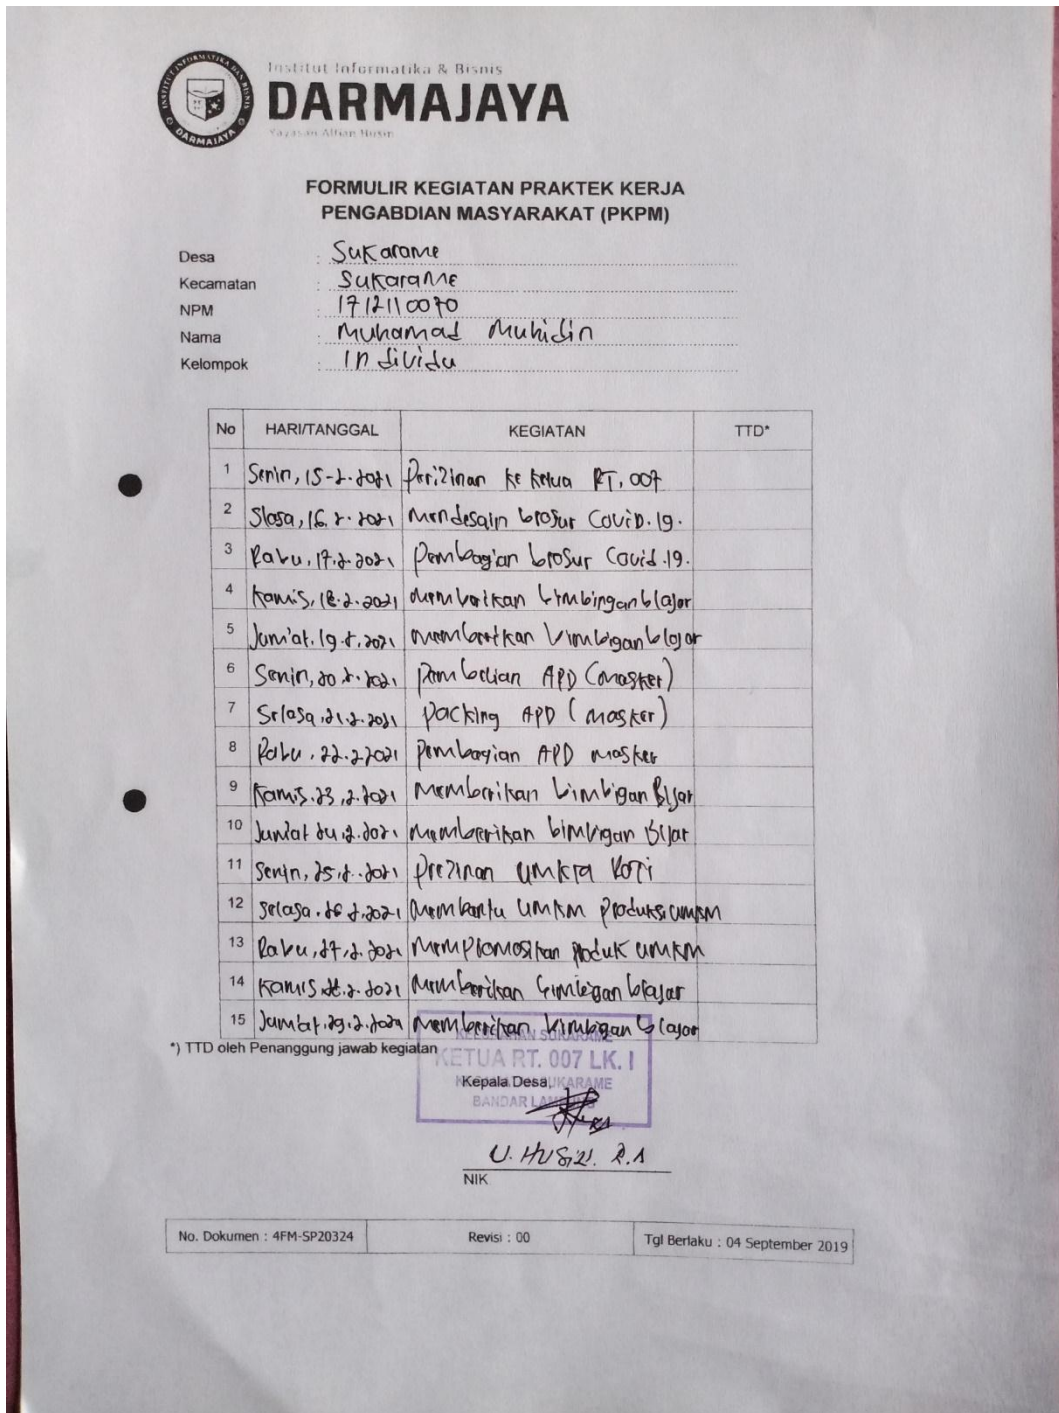 Institut Informatika & Bisnis
DARMAJAYA
Yayasan Alfian Husin
INSTITUT INFORMATIKA DAN BISNIS
DARMAJAYA
FORMULIR KEGIATAN PRAKTEK KERJA
PENGABDIAN MASYARAKAT (PKPM)
Desa : Sukarame
Kecamatan : Sukarame
NPM : 1712110070
Nama : Muhamad Muhidin
Kelompok : Individu
No HARI/TANGGAL KEGIATAN TTD*
1 Senin, 15-2-2021 Perizinan ke ketua RT. 007
2 Slasa, 16.2.2021 Mendesain brosur Covid.19.
3 Rabu, 17.2.2021 Pembagian brosur Covid.19.
4 Kamis, 18.2.2021 Memberikan bimbingan blajar
5 Jum'at, 19.2.2021 memberikan bimbigan blajar
6 Senin, 20.2.2021 pembelian APD (masker)
7 Selasa, 21.2.2021 packing APD (masker)
8 Rabu, 22.2.2021 pembagian APD masker
9 Kamis, 23.2.2021 Memberikan bimbigan Bljar
10 Jum'at 24.2.2021 Memberikan bimbigan Bljar
11 Senin, 25.2.2021 Prezinan Roti
12 Selasa. 26.2.2021 Membantu UMKM Produksi UMKM
13 Rabu, 27.2.2021 Mempromosikan produk UMKM
14 Kamis 28.2.2021 Memberikan bimbigan blajar
15 Jum'at, 29.2.2021 Memberikan bimbigan blajar
*) TTD oleh Penanggung jawab kegiatan
KELURAHAN SUKARAME
KETUA RT. 007 LK. I
Kepala Desa,
SUKARAME
BANDAR LAMPUNG
NIK
No. Dokumen : 4FM-SP20324 Revisi : 00 Tgl Berlaku : 04 September 2019